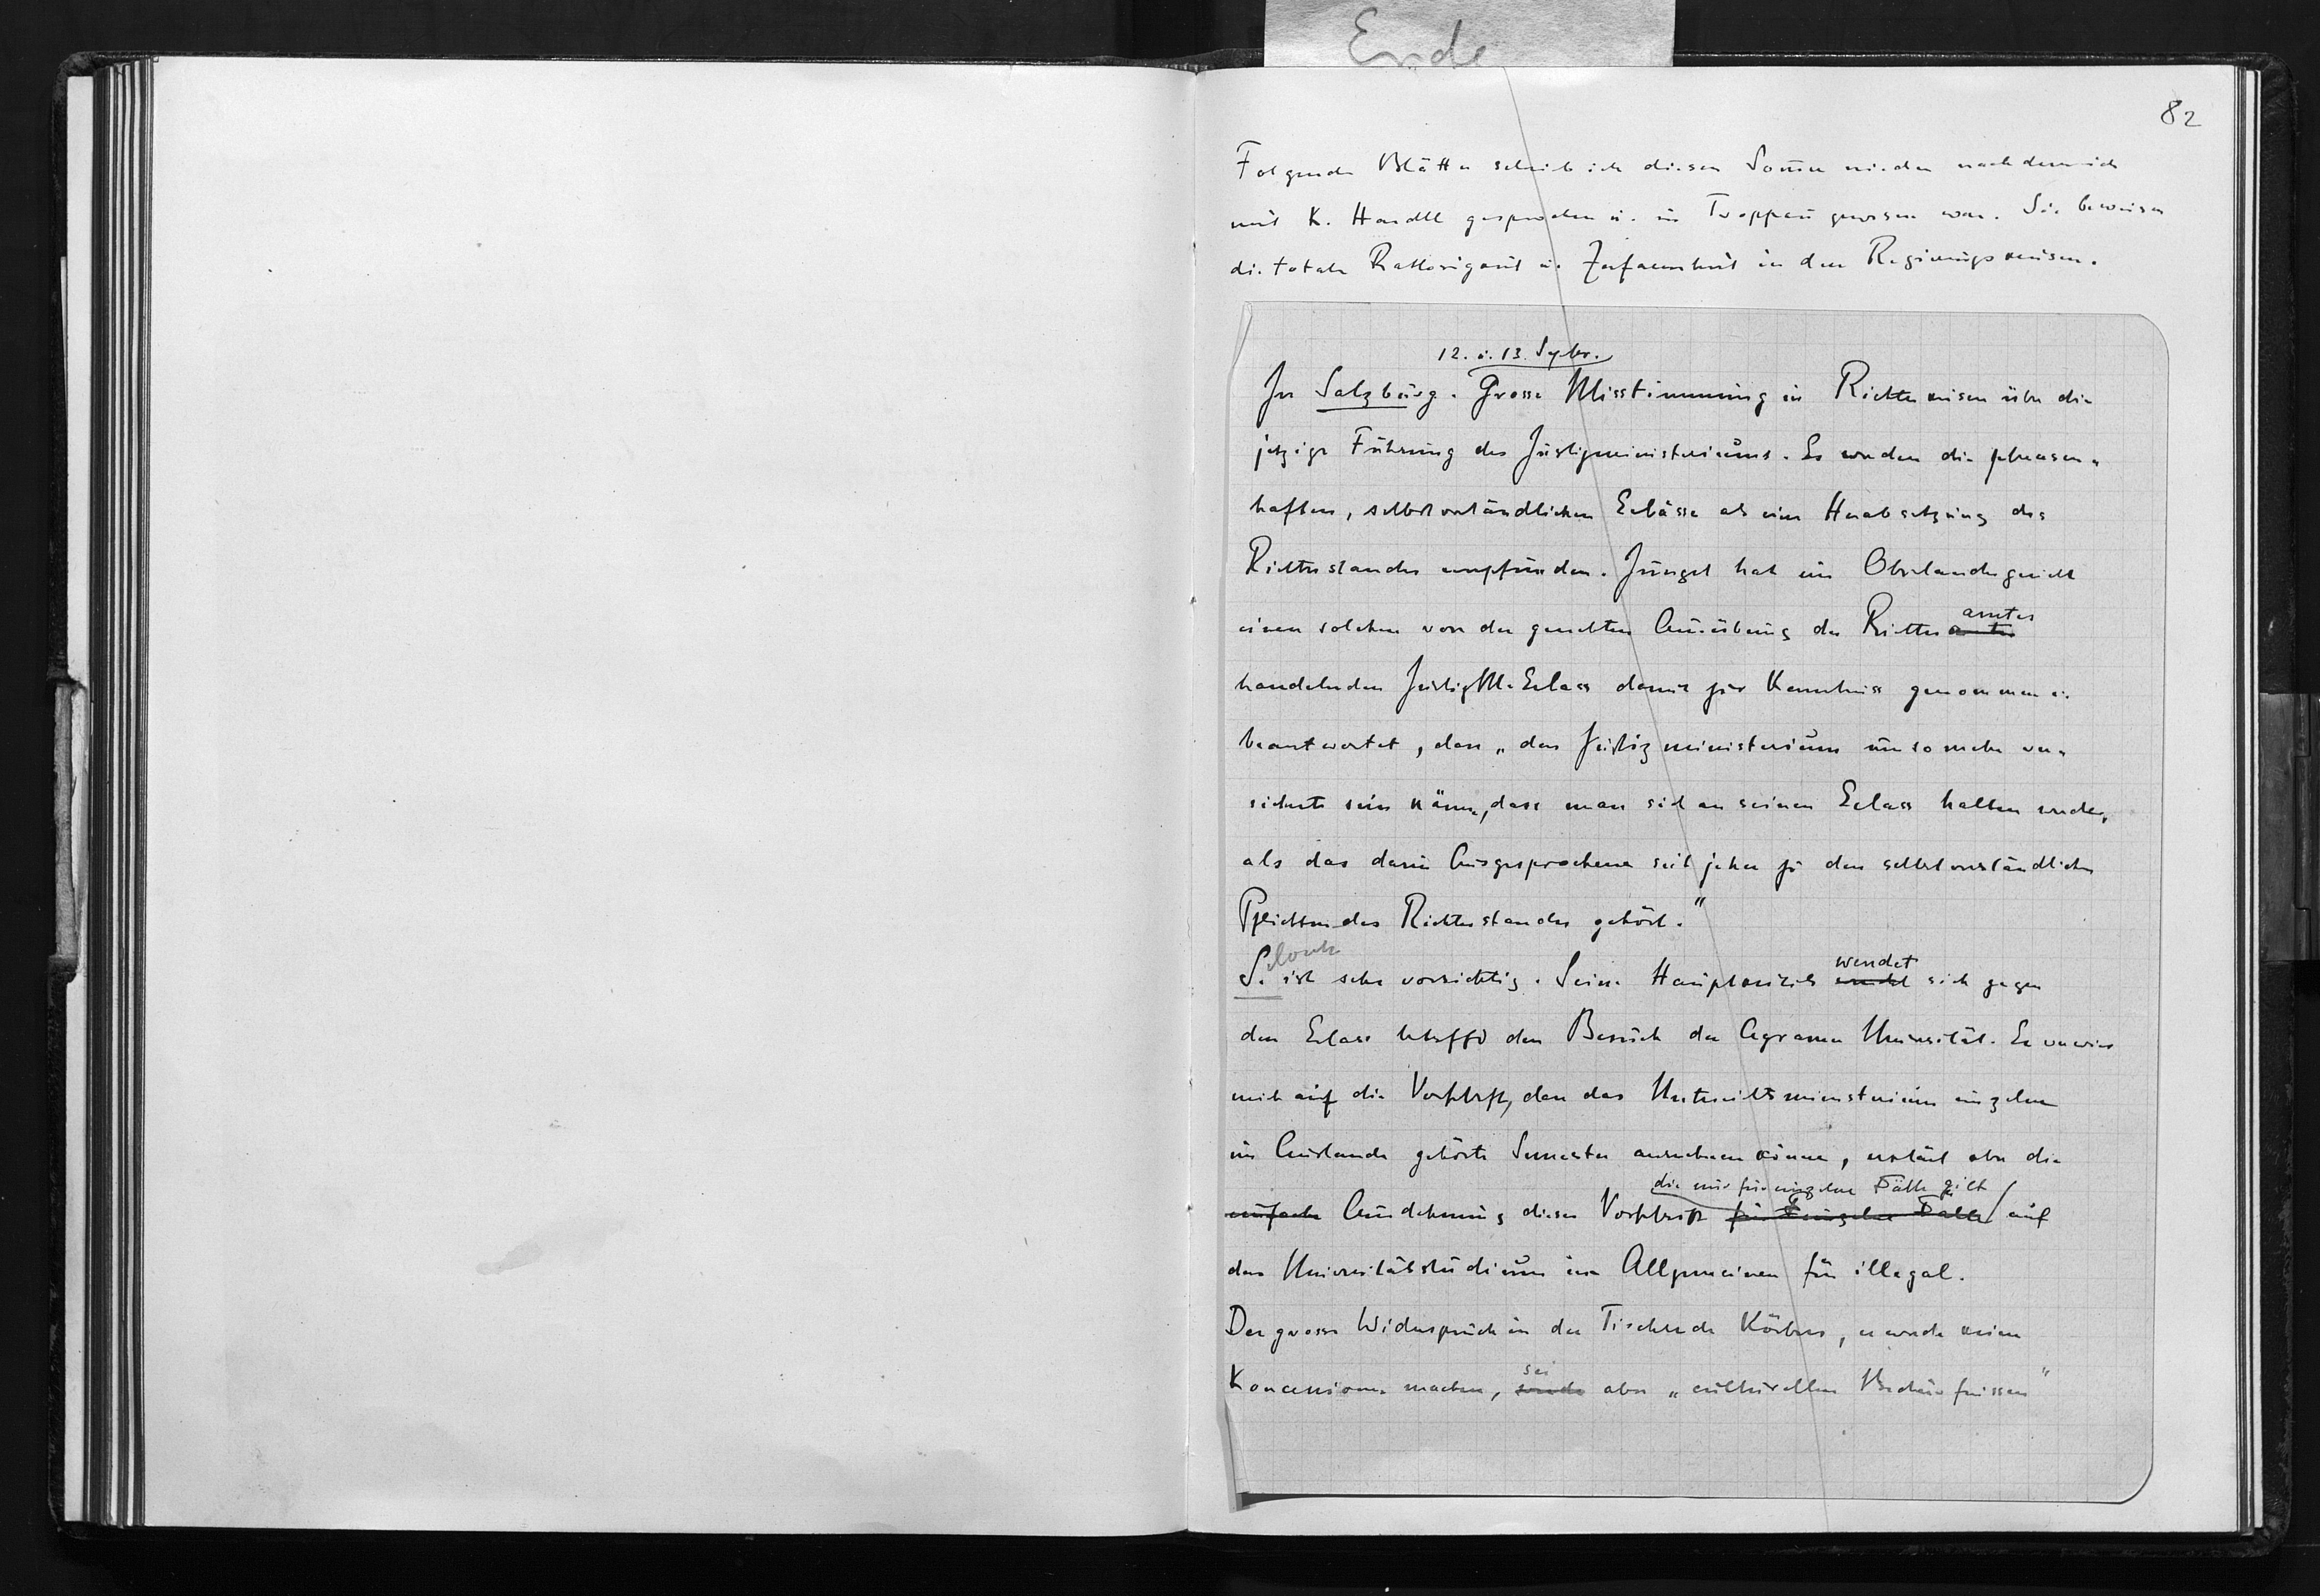 Ende
82
Folgende Blätter schrieb ich diesen Som̅er nieder nachdem ich
mit K. Handel gesprochen u. in Troppau gewesen war. Sie beweisen
die totale Ratlosigkeit u. Zerfahrenheit in den Regierungskreisen.
12. u. 13. Septbr.
In Salzburg. Grosse Misstimmung in Richterkreisen über die
jetzige Führung des Justizministeriums. Es werden die phrasen-
haften, selbstverständlichen Erlässe als eine Herabsetzung des
Richterstandes empfunden. Jüngst hat ein Oberlandesgericht
einen solchen von der gerechten Ausübung des Richteramtes
handelnden JustizM. Erlass damit zur Kenntniss genommen u.
beantwortet, dass „das Justizministerium um so mehr ver-
sichert sein kön̅e, dass man sich an seinen Erlass halten werde,
als das darin Ausgesprochene seit jeher zu den selbstverständlichen
Pflichten des Richterstandes gehört."
S. ist sehr vorsichtig. Seine Hauptkritik wendet sich gegen
den Erlass betreffd den Besuch der Agramer Universität. Er verwies
mich auf die Vorschrift, dass das Unterrichtsministerium einzelne
im Auslande gehörte Semester anrechnen könne, erklärt aber die
die nur für einzelne Fälle gilt
einfache Ausdehnung dieser Vorschrift für Einzelne Fälle auf
das Universitätsstudium im Allgemeinen für illegal.
Der grosse Widerspruch in der Tischrede Körbers, er werde keine
Koncessionen machen, sei aber „culturellen Bedürfnissen"